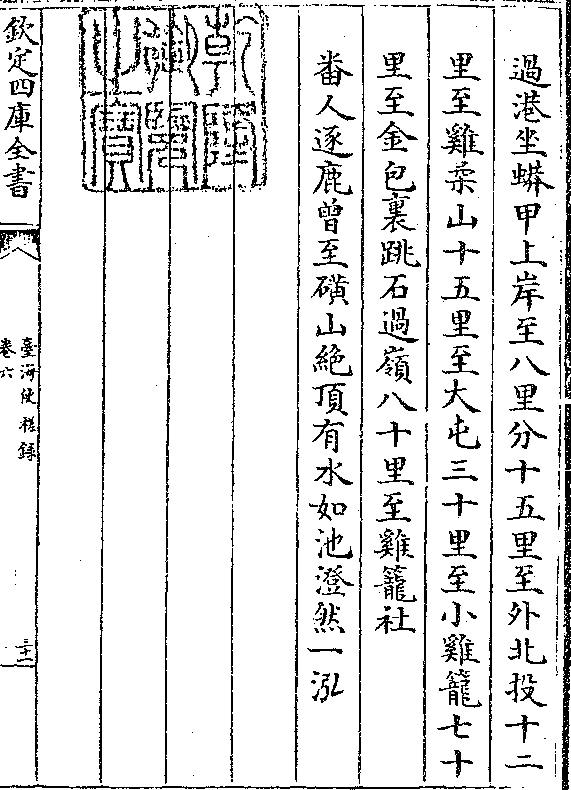 過港坐蟒甲上岸至八里分十五里至外北投十二
里至雞柔山十五里至大屯三十里至小雞籠七十
里至金包裏跳石過嶺八十里至雞籠社
番人逐鹿曾至磺山絶頂有水如池澄然一泓
乾隆御覽之寶
欽定四庫全書
臺海使槎録
卷六
三十二